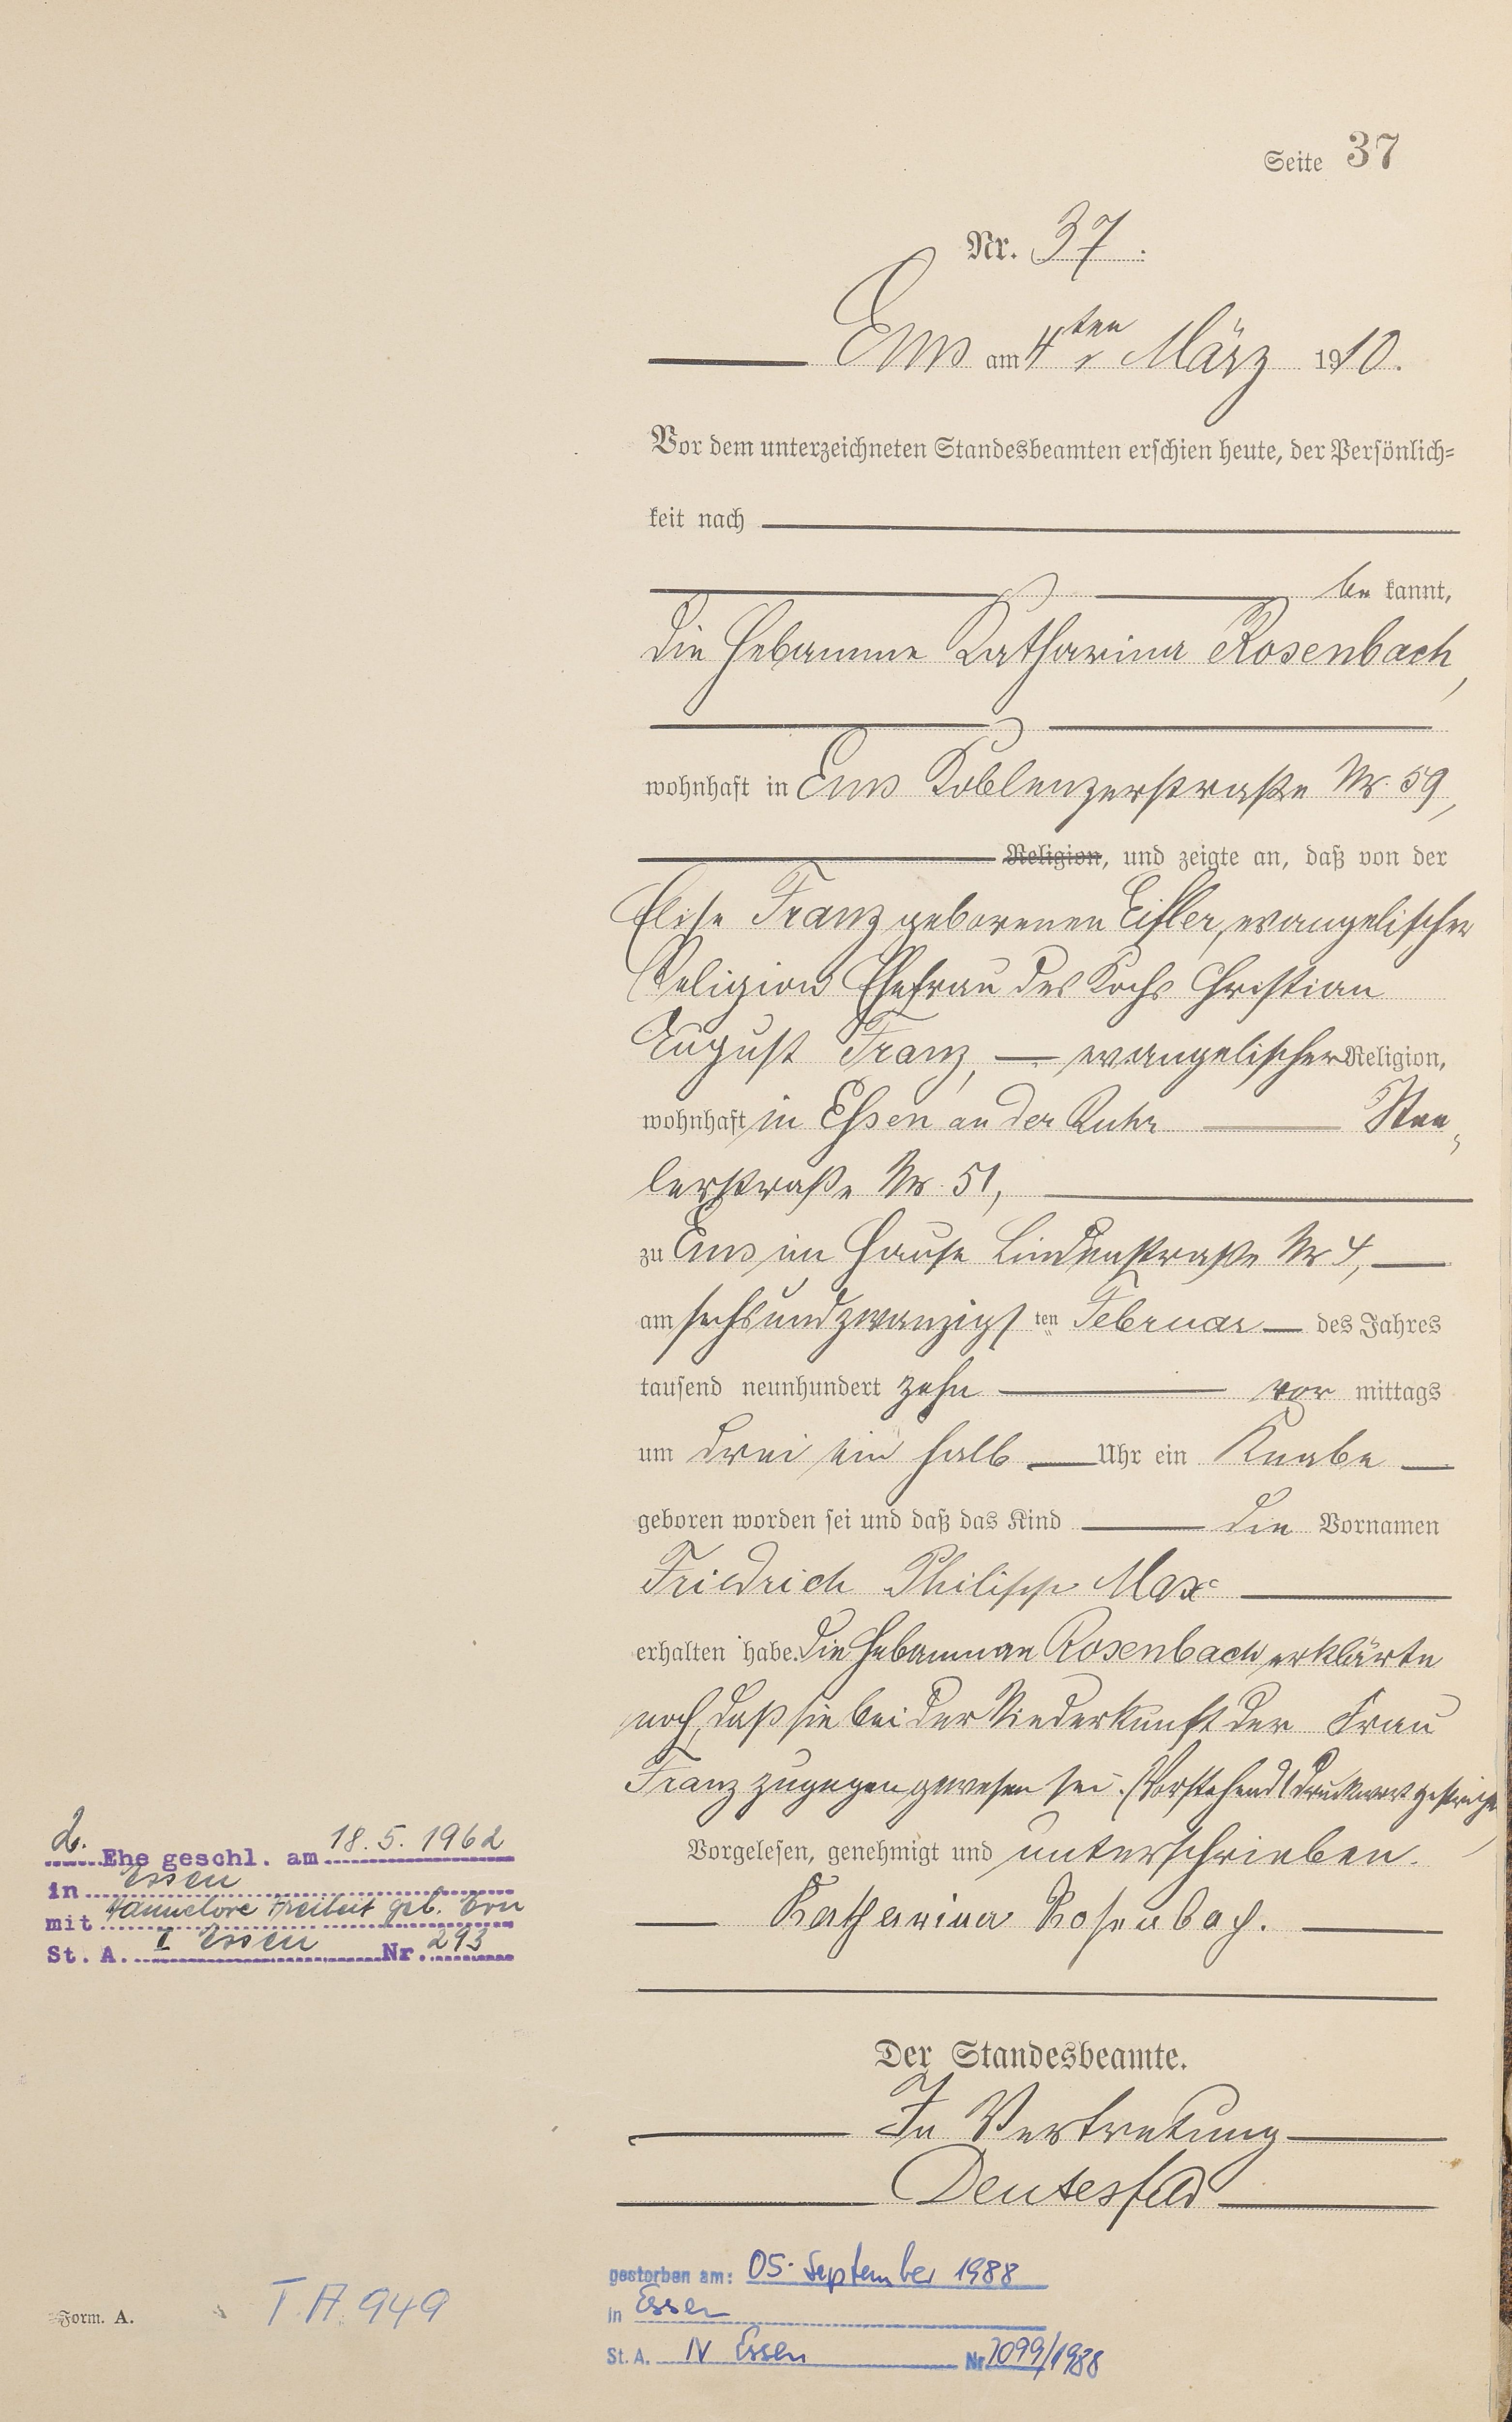 Seite 37
Nr. 37.
Ems am 4ten März 1910.
Vor dem unterzeichneten Standesbeamten erschien heute, der Persönlich=
keit nach
be kannt,
die Hebamme Katharina Rosenbach,
wohnhaft in Ems Koblenzerstraße Nr. 59,
Religion, und zeigte an, daß von der
Elise Franz geborenen Eisler, evangelischer
Religion Ehefrau des Kochs Christian
August Franz, evangelischer Religion,
wohnhaft in Essen an der Ruhr Stee„
lerstraße Nr. 51,
zu Ems im Hause Lindenstraße Nr 4,
am sechsundzwanzigsten Februar des Jahres
tausend neunhundert zehn vor mittags
um drei ein halb Uhr ein Knabe
geboren worden sei und daß das Kind die Vornamen
Friedrich Philipp Max
erhalten habe. Die Hebamme Rosenbach erklärte
noch, daß sie bei der Niederkunft der Frau
Franz zugegen gewesen sei. (Vorstehend 1 Druckwort gestrichen)
Vorgelesen, genehmigt und unterschrieben.
Katharina Rosenbach.
Der Standesbeamte.
In Vertretung
Deutesfeld
2. Ehe geschl. am 18.5.1962
in Essen
mit Hannelore Freibeit geb.
St. A. I Essen Nr. 293
gestorben am: 05. September 1988
in Essen
St. A. IV Essen Nr. 1099/1988
Form. A.
T. A. 949